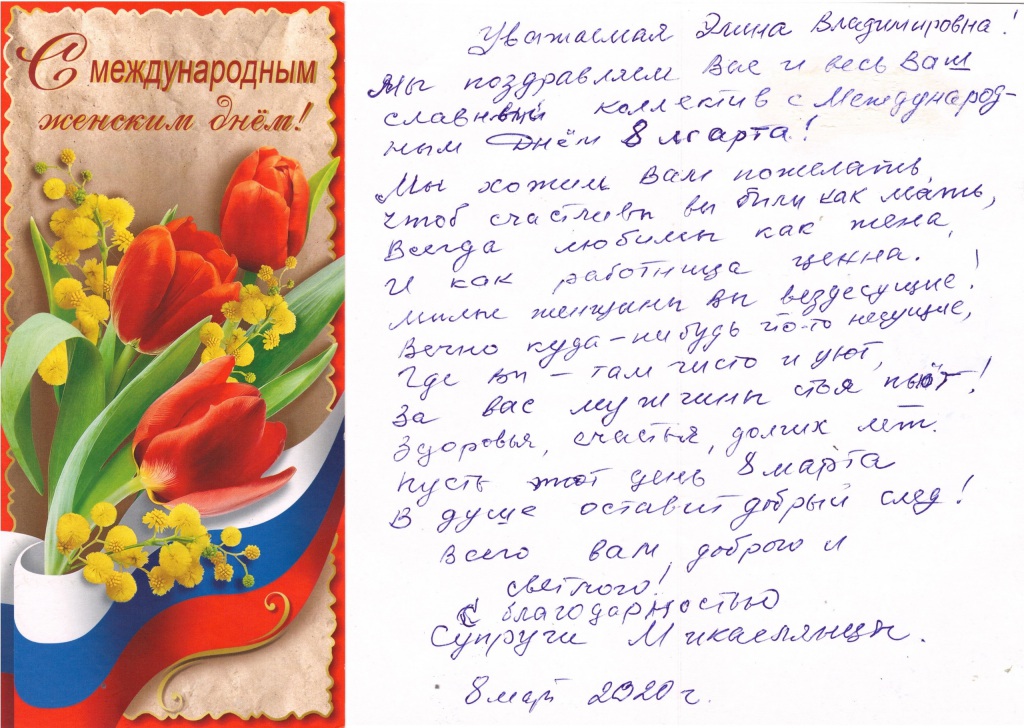 С международным
женским днём!
Уважаемая Элина Владимировна!
Мы поздравляем Вас и весь Ваш
славный коллектив с Международ-
ным Днём 8 марта!
Мы хотим Вам пожелать,
чтоб счастливы вы были как мать,
Всегда любимы как жена,
И как работница ценна.
Милые женщины вы вездесущие!
Вечно куда-нибудь что-то несущие,
Где вы – там чисто и уют,
За вас мужчины стоя пьют!
Здоровья, счастья, долгих лет.
Пусть этот день 8 марта
В душе оставит добрый след!
Всего вам, доброго и
светлого!
С благодарностью
Супруги Микаелянцы.
8 март 2020 г.